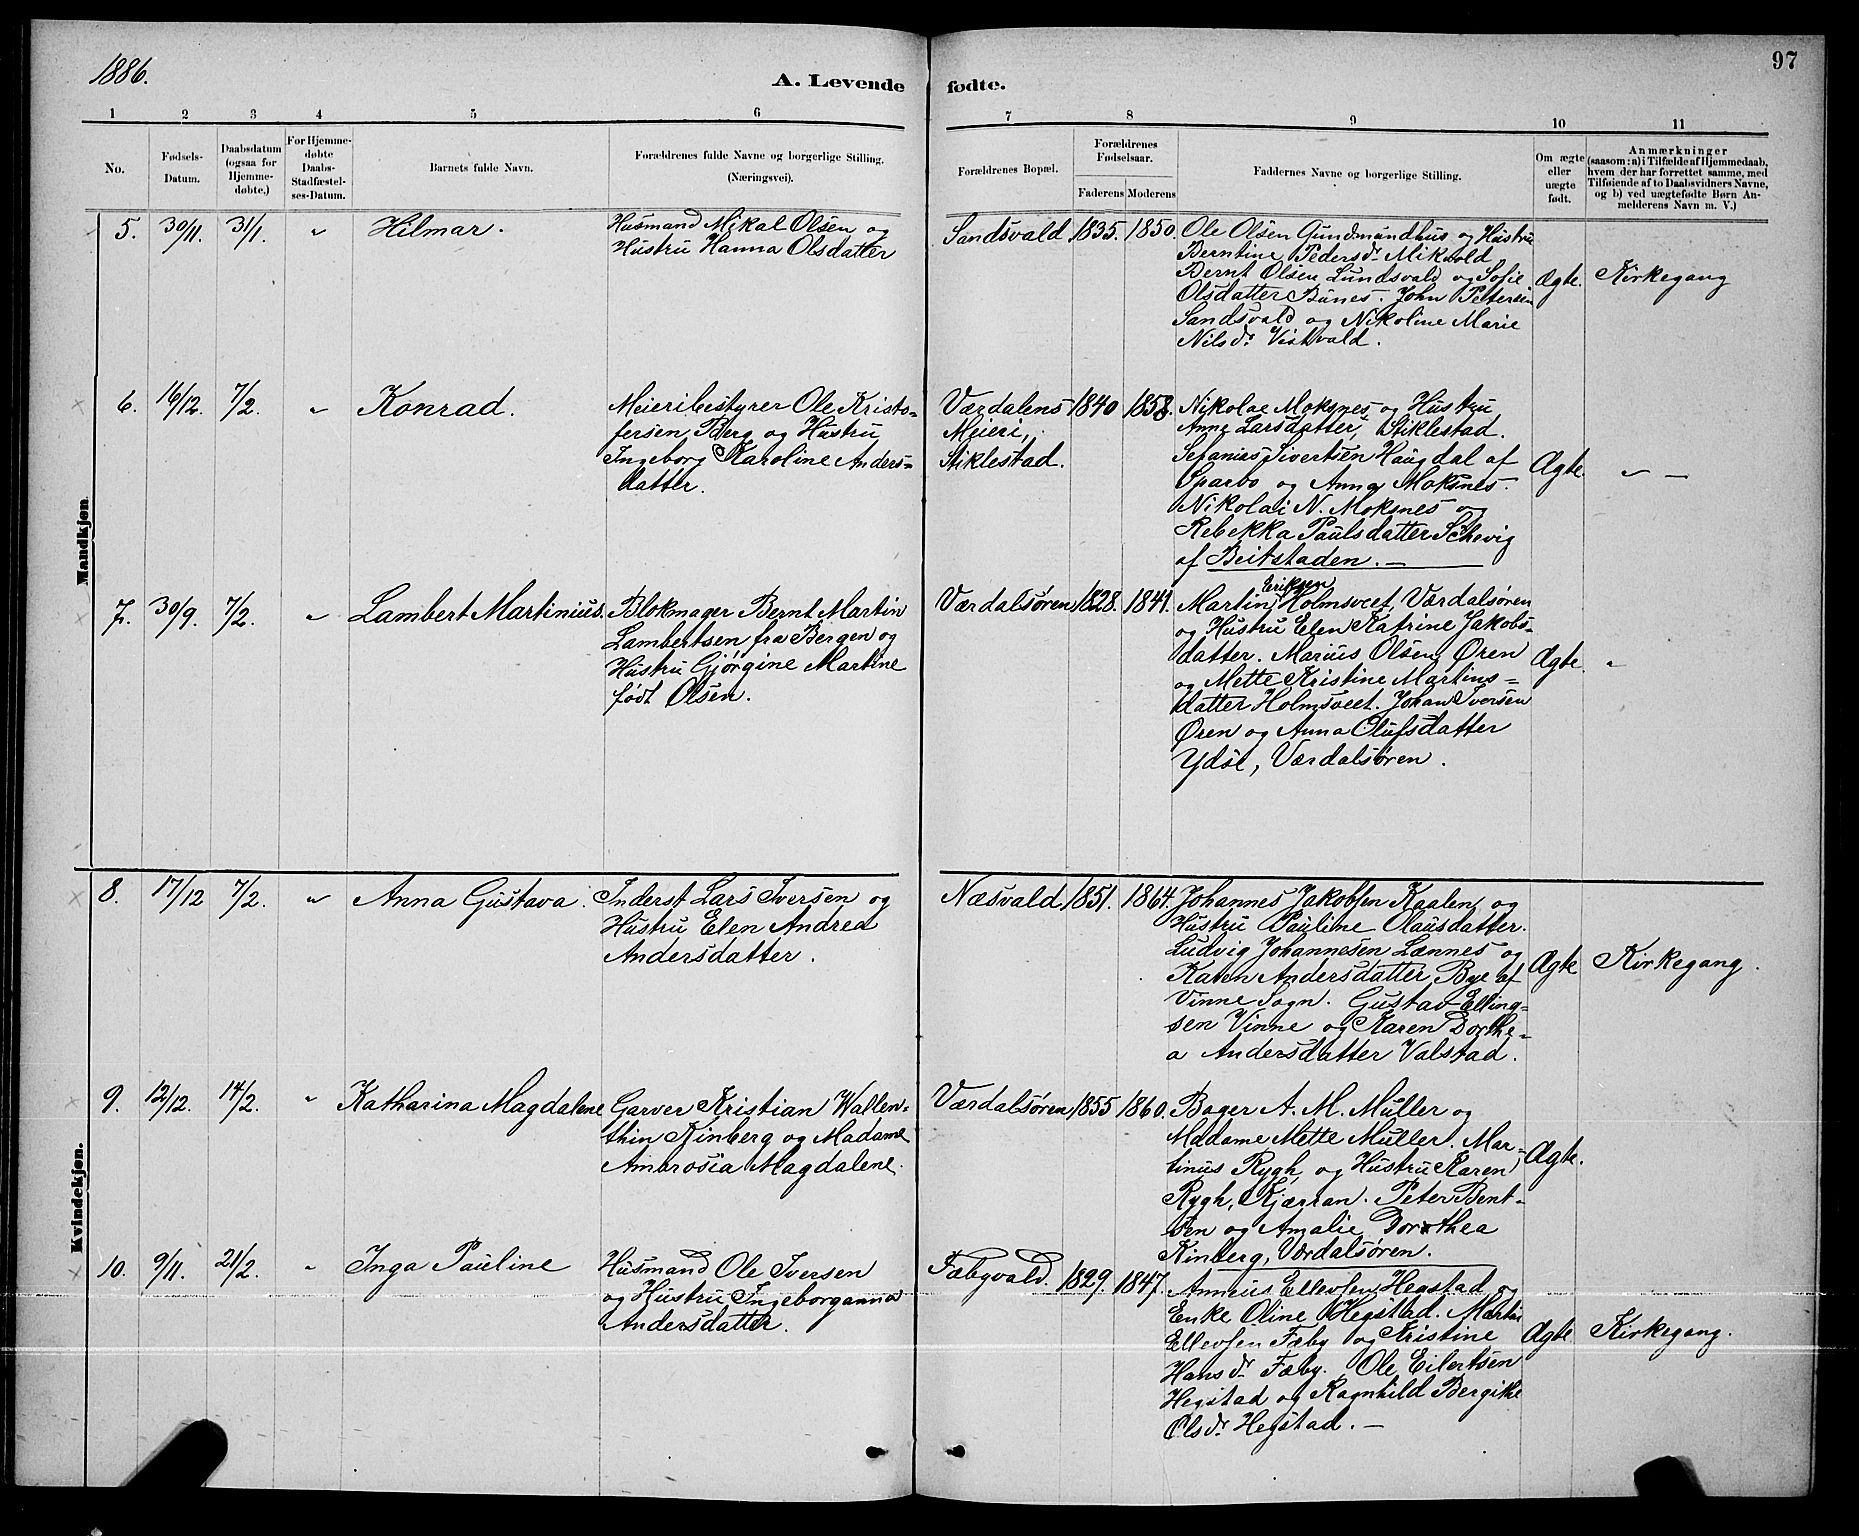 1886.
A. Levende fødte.
97
1 2 3 4 5 6 7 8 9 10 11
No.
Fødsels-
Datum.
Daabsdatum
(ogsaa for
Hjemme-
døbte.)
For Hjemme-
døbte
Daabs-
Stadfæstel-
ses-Datum.
Barnets fulde Navn.
Forældrenes fulde Navne og borgerlige Stilling.
(Næringsvei).
Forældrenes Bopæl.
Forældrenes
Fødselsaar.
Faderens Moderens
Faddernes Navne og borgerlige Stilling.
Om ægte
eller
uægte
født.
Anmærkninger
(saasom: a) i Tilfælde af Hjemmedaab,
hvem der har forrettet samme, med
Tilføiende af to Daabsvidners Navne,
og b) ved uægtefødte Børn An-
melderens Navn m. V.)
Mandkjøn
5. 30/11. 31/1. " Hilmar.
Husmand Mikal Olsen og
Hustru Hanna Olsdatter
Sandsvald 1835. 1850.
Ole Olsen Gundmundhus og Hustru
Berntine Pedersdr. Mikvold
Bernt Olsen Lundsvald og Sofie
Olsdatter Bunes. John Petersen
Sandsvald og Nikoline Marie
Nilsdr. Vistvald.
Ægte. Kirkegang
6. 16/12. 7/2. " Konrad.
Meieribestyrer Ole Kristo-
fersen Berg og Hustru
Ingeborg Karoline Anders=
datter.
Værdalens
Meieri,
Stiklestad.
1840 1858.
Nikolae Moksnes og Hustru
Anne Larsdatter, Stiklestad.
Sefanias Sivertsen Haugdal af
Sparbo og Anna Moksnes.
Nikolai N. Moksnes og
Rebekka Paulsdatter Schevig
af Beitstaden. —
Ægte. " —
7. 30/9. 7/2. " Lambert Martinius.
Blokmager Bernt Martin
Lambertsen fra Bergen og
Hustru Gjørgine Martine
født Olsen.
Værdalsøren 1828. 1841.
Eriksen
Martin Holmsveet, Værdalsøren
og Hustru Elen Katrine Jakobs-
datter. Marius Olsen Øren
og Mette Kristine Martins=
datter Holmsveet. Johan Iversen
Øren og Anna Olufsdatter
Ydse, Værdalsøren.
Ægte. "
Kvindekjøn.
8. 17/12 7/2. " Anna Gustava.
Inderst Lars Iversen og
Hustru Elen Andrea
Andersdatter.
Næsvald 1851. 1864.
Johannes Jakobsen Kaalen og
Hustru Pauline Olausdatter.
Ludvig Johannesen Lænnes og
Karen Andersdatter Bye af
Vinne Sogn. Gustav Elling-
sen Vinne og Karen Dorthe-
a Andersdatter Valstad.
Ægte Kirkegang.
9. 12/12. 14/2. " Katharina Magdalene
Garver Kristian Wallen-
thin Kinberg og Madame
Ambrosia Magdalene.
Værdalsøren 1855 1860.
Bager A. M. Muller og
Madame Mette Muller. Mar-
tinus Rygh og Hustru Karen
Rygh, Kjærran. Peter Bent-
sen og Amalie Dorothea
Kinberg, Værdalsøren.
Ægte.
10. 9/11. 21/2. " Inga Pauline
Husmand Ole Iversen
og Hustru Ingeborganna
Andersdatter.
Fæbyvald. 1829. 1847.
Anneus Ellevsen Hegstad og
Enke Oline Hegstad. Martin
Ellevsen Fæby og Kristine
Hansdr. Fæby. Ole Eilertsen
Hegstad og Ragnhild Bergitte
Olsdr. Hegstad. —
Ægte Kirkegang.